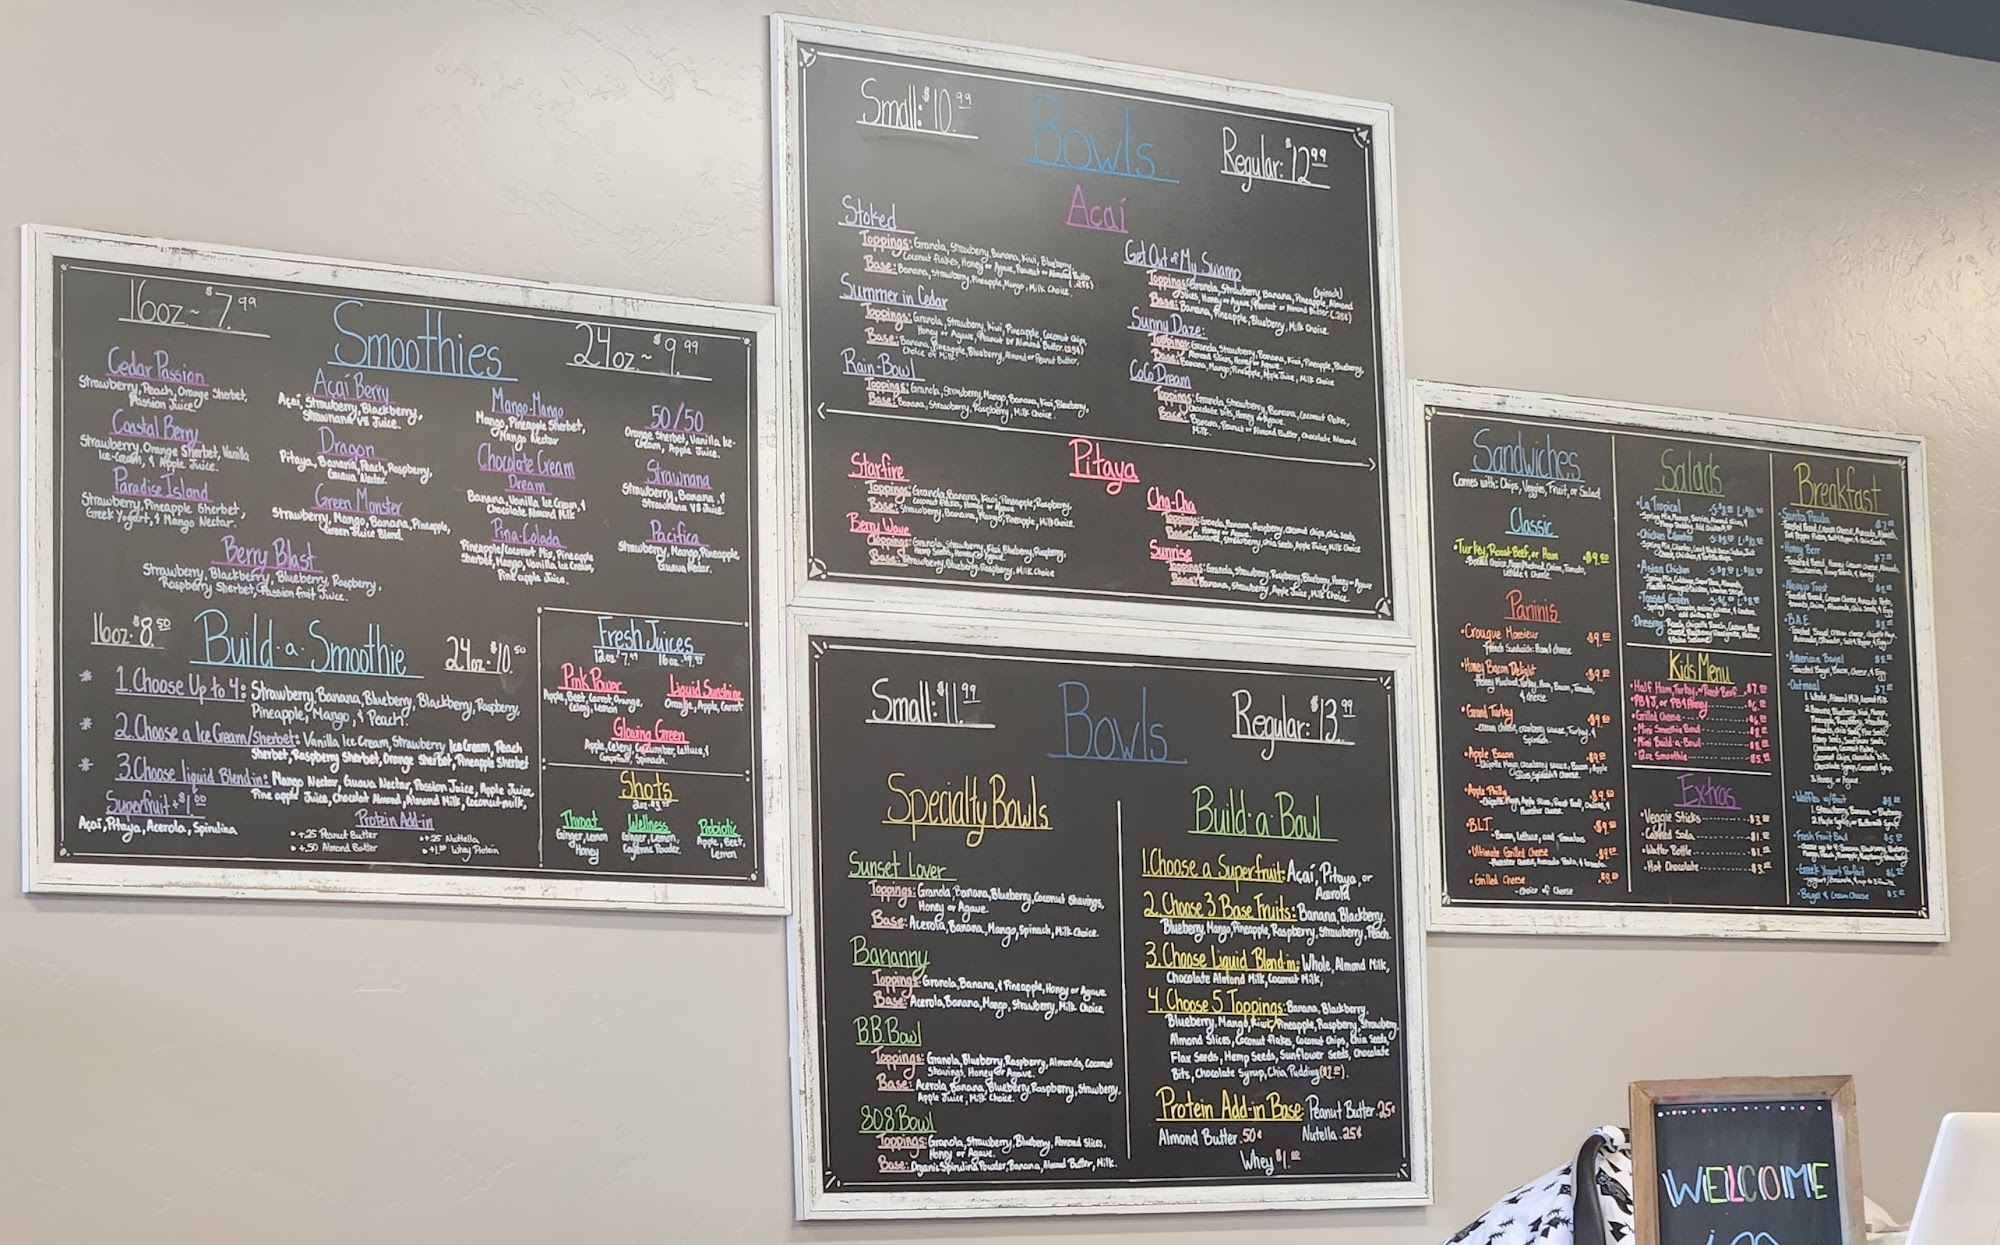 16oz ~ $7.99
Smoothies
24oz ~ $9.99
Cedar Passion
Strawberry, Peach, Orange Sherbet,
Passion Juice
Coastal Berry
Strawberry, Orange Sherbet, Vanilla
Ice-Cream, & Apple Juice.
Paradise Island
Strawberry, Pineapple Sherbet,
Greek Yogurt, & Mango Nectar.
Açaí Berry
Açaí, Strawberry, Blackberry,
Strawnana V8 Juice.
Dragon
Pitaya, Banana, Peach, Raspberry,
Guava Nectar.
Green Monster
Strawberry, Mango, Banana, Pineapple,
Green Juice Blend.
Mango-Mango
Mango, Pineapple Sherbet,
Mango Nectar
Chocolate Cream
Dream
Banana, Vanilla Ice Cream, &
Chocolate Almond Milk
Pina-Colada
Pineapple/Coconut Mix, Pineapple
Sherbet, Mango, Vanilla Ice Cream,
Pineapple Juice.
50/50
Orange Sherbet, Vanilla Ice-
Cream, Apple Juice.
Strawnana
Strawberry, Banana, &
Strawnana V8 Juice.
Pacifica
Strawberry, Mango, Pineapple,
Guava Nectar.
Berry Blast
Strawberry, Blackberry, Blueberry, Raspberry,
Raspberry Sherbet, Passion fruit Juice.
16oz. $8.50
Build-a-Smoothie
24oz. $10.50
* 1. Choose Up to 4: Strawberry, Banana, Blueberry, Blackberry, Raspberry,
Pineapple, Mango, & Peach.
* 2. Choose a Ice Cream/sherbet: Vanilla Ice Cream, Strawberry Ice Cream, Peach
Sherbet, Raspberry Sherbet, Orange Sherbet, Pineapple Sherbet
* 3. Choose liquid Blend-in: Mango Nectar, Guava Nectar, Passion Juice, Apple Juice,
Pine apple Juice, Chocolat Almond, Almond Milk, Coconut milk,
Superfruit +$1.00
Açaí, Pitaya, Acerola, Spirulina
Protein Add-in
• +.25 Peanut Butter
• +.50 Almond Butter
• +.25 Nutella
• +1.00 Whey Protein
Fresh Juices
12oz $7.99 16oz $9.99
Pink Power
Apple, Beet, Carrot, Orange,
Celery, Lemon
Liquid Sunshine
Orange, Apple, Carrot
Glowing Green
Apple, Celery, Cucumber, Lettuce, &
Grapefruit, Spinach.
Shots
Throat
Ginger, Lemon
Honey
Wellness
Ginger, Lemon,
Cayenne Powder.
Probiotic
Apple, Beet,
Lemon
Small: $10.99
Bowls
Regular: $12.99
Açaí
Stoked
Toppings: Granola, Strawberry, Banana, Kiwi, Blueberry,
Coconut flakes, Honey or Agave, Peanut or Almond Butter
Base: Banana, Strawberry, Pineapple, Mango, Milk Choice. (.25¢)
Summer in Cedar
Toppings: Granola, Strawberry, Kiwi, Pineapple, Coconut Chips,
Honey or Agave, Peanut or Almond Butter. (.25¢)
Base: Banana, Pineapple, Blueberry, Almond or Peanut Butter,
Choice of Milk.
Rain-Bowl
Toppings: Granola, Strawberry, Mango, Banana, Kiwi, Blueberry,
Base: Banana, Strawberry, Raspberry, Milk Choice.
Get Out of My Swamp
Toppings: Granola, Strawberry, Banana, Pineapple, Almond (Spinach)
Slices, Honey or Agave, Peanut or Almond Butter (.25¢)
Base: Banana, Pineapple, Blueberry, Milk Choice.
Sunny Daze:
Toppings: Granola, Strawberry, Banana, Kiwi, Pineapple, Blueberry,
Almond Slices, Honey or Agave.
Base: Banana, Mango, Pineapple, Apple Juice, Milk Choice
CoCo Dream
Toppings: Granola, Strawberry, Banana, Coconut flakes,
Chocolate bits, Honey or Agave
Base: Banana, Peanut or Almond Butter, Chocolate Almond
Milk.
Pitaya
Starfire
Toppings: Granola, Banana, Kiwi, Pineapple, Raspberry,
Coconut Flakes, Honey or Agave
Base: Strawberry, Banana, Mango, Pineapple, Milk Choice.
Berry Wave
Toppings: Granola, Strawberry, Kiwi, Blueberry, Raspberry,
Hemp Seeds, Honey or Agave
Base: Strawberry, Blueberry, Raspberry, Milk Choice
Cha-Cha
Toppings: Granola, Banana, Raspberry, coconut chips, chia seeds,
Base: Banana, Strawberry, Chia Seeds, Apple Juice, Milk Choice
Sunrise
Toppings: Granola, Strawberry, Raspberry, Blueberry, Honey or Agave
Base: Banana, Strawberry, Apple Juice, Milk Choice
Small: $11.99
Bowls
Regular: $13.99
Specialty Bowls
Sunset Lover
Toppings: Granola, Banana, Blueberry, Coconut Shavings,
Honey or Agave.
Base: Acerola, Banana, Mango, Spinach, Milk Choice.
Bananny
Toppings: Granola, Banana, & Pineapple, Honey or Agave
Base: Acerola, Banana, Mango, Strawberry, Milk Choice
B.B. Bowl
Toppings: Granola, Blueberry, Raspberry, Almonds, Coconut
Shavings, Honey or Agave.
Base: Acerola, Banana, Blueberry, Raspberry, Strawberry,
Apple Juice, Milk Choice.
808 Bowl
Toppings: Granola, Strawberry, Blueberry, Almond Slices,
Honey or Agave.
Base: Organic Spirulina Powder, Banana, Almond Butter, Milk.
Build-a-Bowl
1. Choose a Superfruit: Açaí, Pitaya, or
Acerola
2. Choose 3 Base Fruits: Banana, Blackberry,
Blueberry, Mango, Pineapple, Raspberry, Strawberry, Peach.
3. Choose Liquid Blend-in: Whole, Almond Milk,
Chocolate Almond Milk, Coconut Milk,
4. Choose 5 Toppings: Banana, Blackberry,
Blueberry, Mango, Kiwi, Pineapple, Raspberry, Strawberry,
Almond Slices, Coconut flakes, Coconut Chips, Chia Seeds,
Flax Seeds, Hemp Seeds, Sunflower Seeds, Chocolate
Bits, Chocolate Syrup, Chia Pudding
Protein Add-in Base: Peanut Butter .25¢
Almond Butter .50¢ Nutella .25¢
Whey $1.00
Sandwiches
Comes with: Chips, Veggies, Fruit, or Salad
Classic
• Turkey, Roast Beef, or Ham - $9.50
Bread Choice, Mayo/Mustard, Onion, Tomato,
Lettuce & Cheese.
Paninis
• Crouque Monsieur
French Sandwich: Ham & cheese
• Honey Bacon Delight
Honey Mustard, Turkey, Ham, Bacon, Tomato,
& Cheese
• Grand Turkey
Cream cheese, cranberry sauce, Turkey, &
Spinach
• Apple Bacon
Chipotle Mayo, cranberry sauce, Bacon, Apple
Slices, Spinach & Cheese.
• Apple Philly
• BLT:
Bacon, Lettuce, and Tomatoes
• Ultimate Grilled Cheese
• Grilled Cheese
- choice of Cheese
Salads
• La Tropical
• Chicken Cilantro
• Asian Chicken
• Tossed Green
• Dressing:
Kids Menu
• Half Ham, Turkey, or Roast Beef
• PB & J, or PB & Honey
• Grilled Cheese
• Mini Smoothie Bowl
• Mini Build-a-Bowl
• 12oz Smoothie
Extras
• Veggie Sticks
• Canned Soda
• Water Bottle
• Hot Chocolate
Breakfast
• Honey Berr
• Navajo Toast
• B.A.E.
• American Bagel
Toasted Bagel, Bacon, Cheese, & Egg
• Oatmeal
3. Honey or Agave
• Waffles w/fruit
• Fresh Fruit Bowl
• Greek Yogurt Parfait
• Bagel & Cream Cheese
WELCOME